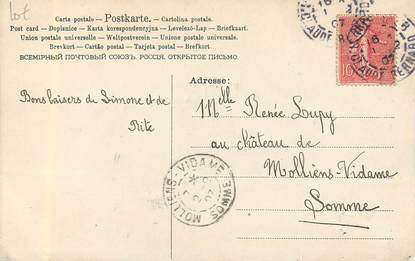 lot
Carte postale — Postkarte. — Cartolina postale
Post card — Dopisnice — Karta korespondencyjna — Levelező-Lap — Briefkaart
Union postale universelle — Weltpostverein — Unione postale universale
Brevkort — Cartão postal — Tarjeta postal — Brefkort
ВСЕМІРНЫЙ ПОЧТОВЫЙ СОЮЗЪ. РОССІЯ. ОТКРЫТОЕ ПИСЬМО.
Adresse:
Bons baisers de Simone et de
Rite
Melle Renée Lupy
au château de
Molliens-Vidame
Somme
MOLLIENS-VIDAME
SOMME
10